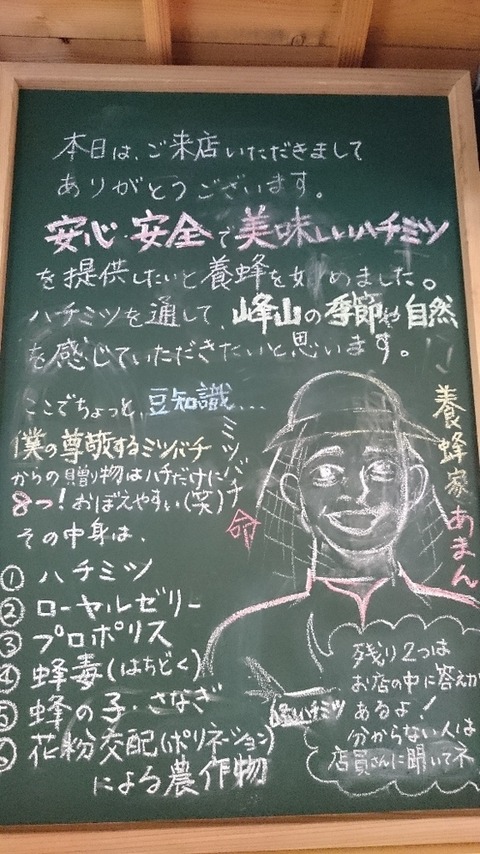 本日は、ご来店いただきまして
ありがとうございます。
安心・安全で美味しいハチミツ
を提供したいと養蜂を始めました。
ハチミツを通して、峰山の季節や自然
を感じていただきたいと思います。
ここでちょっと、豆知識...
僕の尊敬するミツバチ
からの贈り物はハチだけに
8つ!おぼえやすい(笑)
その中身は、
① ハチミツ
② ローヤルゼリー
③ プロポリス
④ 蜂毒(はちどく)
⑤ 蜂の子・さなぎ
⑥ 花粉交配(ポリネーション)
による農作物
ミツバチ
命
養蜂家あまん
ハチミツ
残り2つは
お店の中に答えが
あるよ!
分からない人は
店員さんに聞いてネ